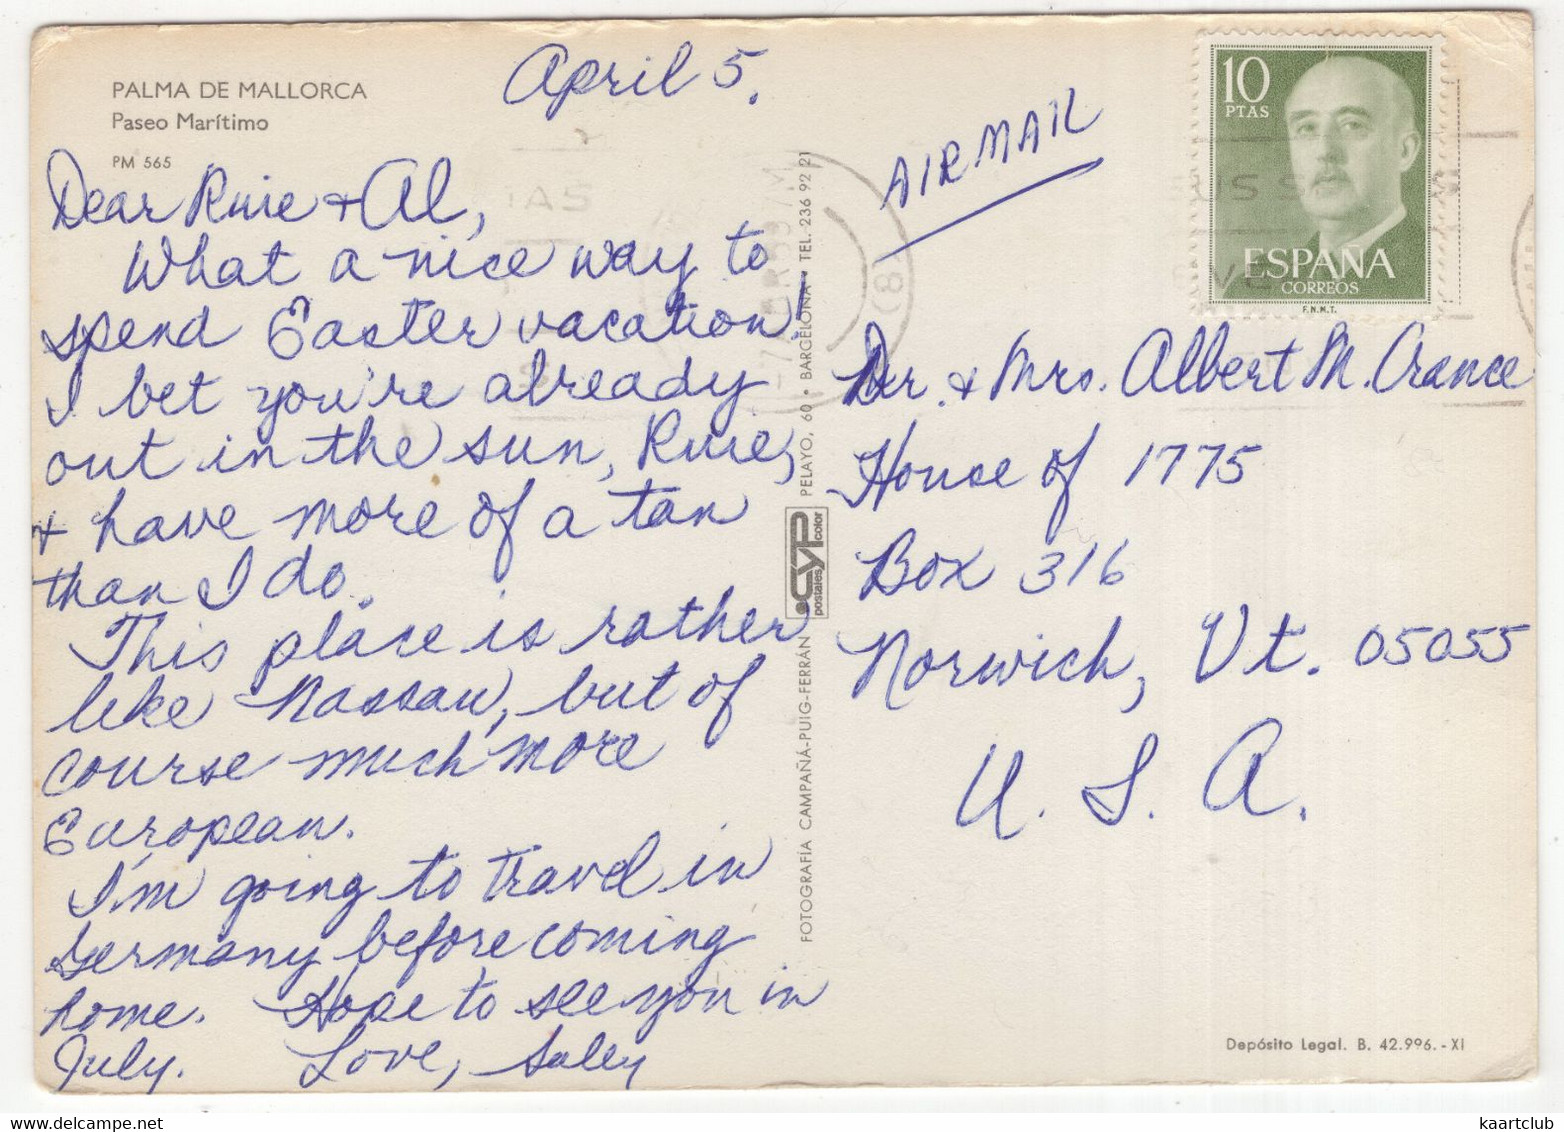 PALMA DE MALLORCA
Paseo Marítimo
PM 565
April 5.
Dear Ruie + Al,
What a nice way to
spend Easter vacation!
I bet you're already
out in the sun, Ruie,
+ have more of a tan
than I do.
This place is rather
like Nassau, but of
course much more
European.
I'm going to travel in
Germany before coming
home. Hope to see you in
July. Love, Salley
FOTOGRAFÍA CAMPAÑÁ-PUIG-FERRÁN
CYP
postales color
PELAYO, 60 • BARCELONA • TEL. 236 92 21
AIRMAIL
10
PTAS
ESPAÑA
CORREOS
F.N.M.T.
Dr. & Mrs. Albert M. Crance
House of 1775
Box 316
Norwich, Vt. 05055
U. S. A.
Depósito Legal. B. 42.996.-XI
kaartclub